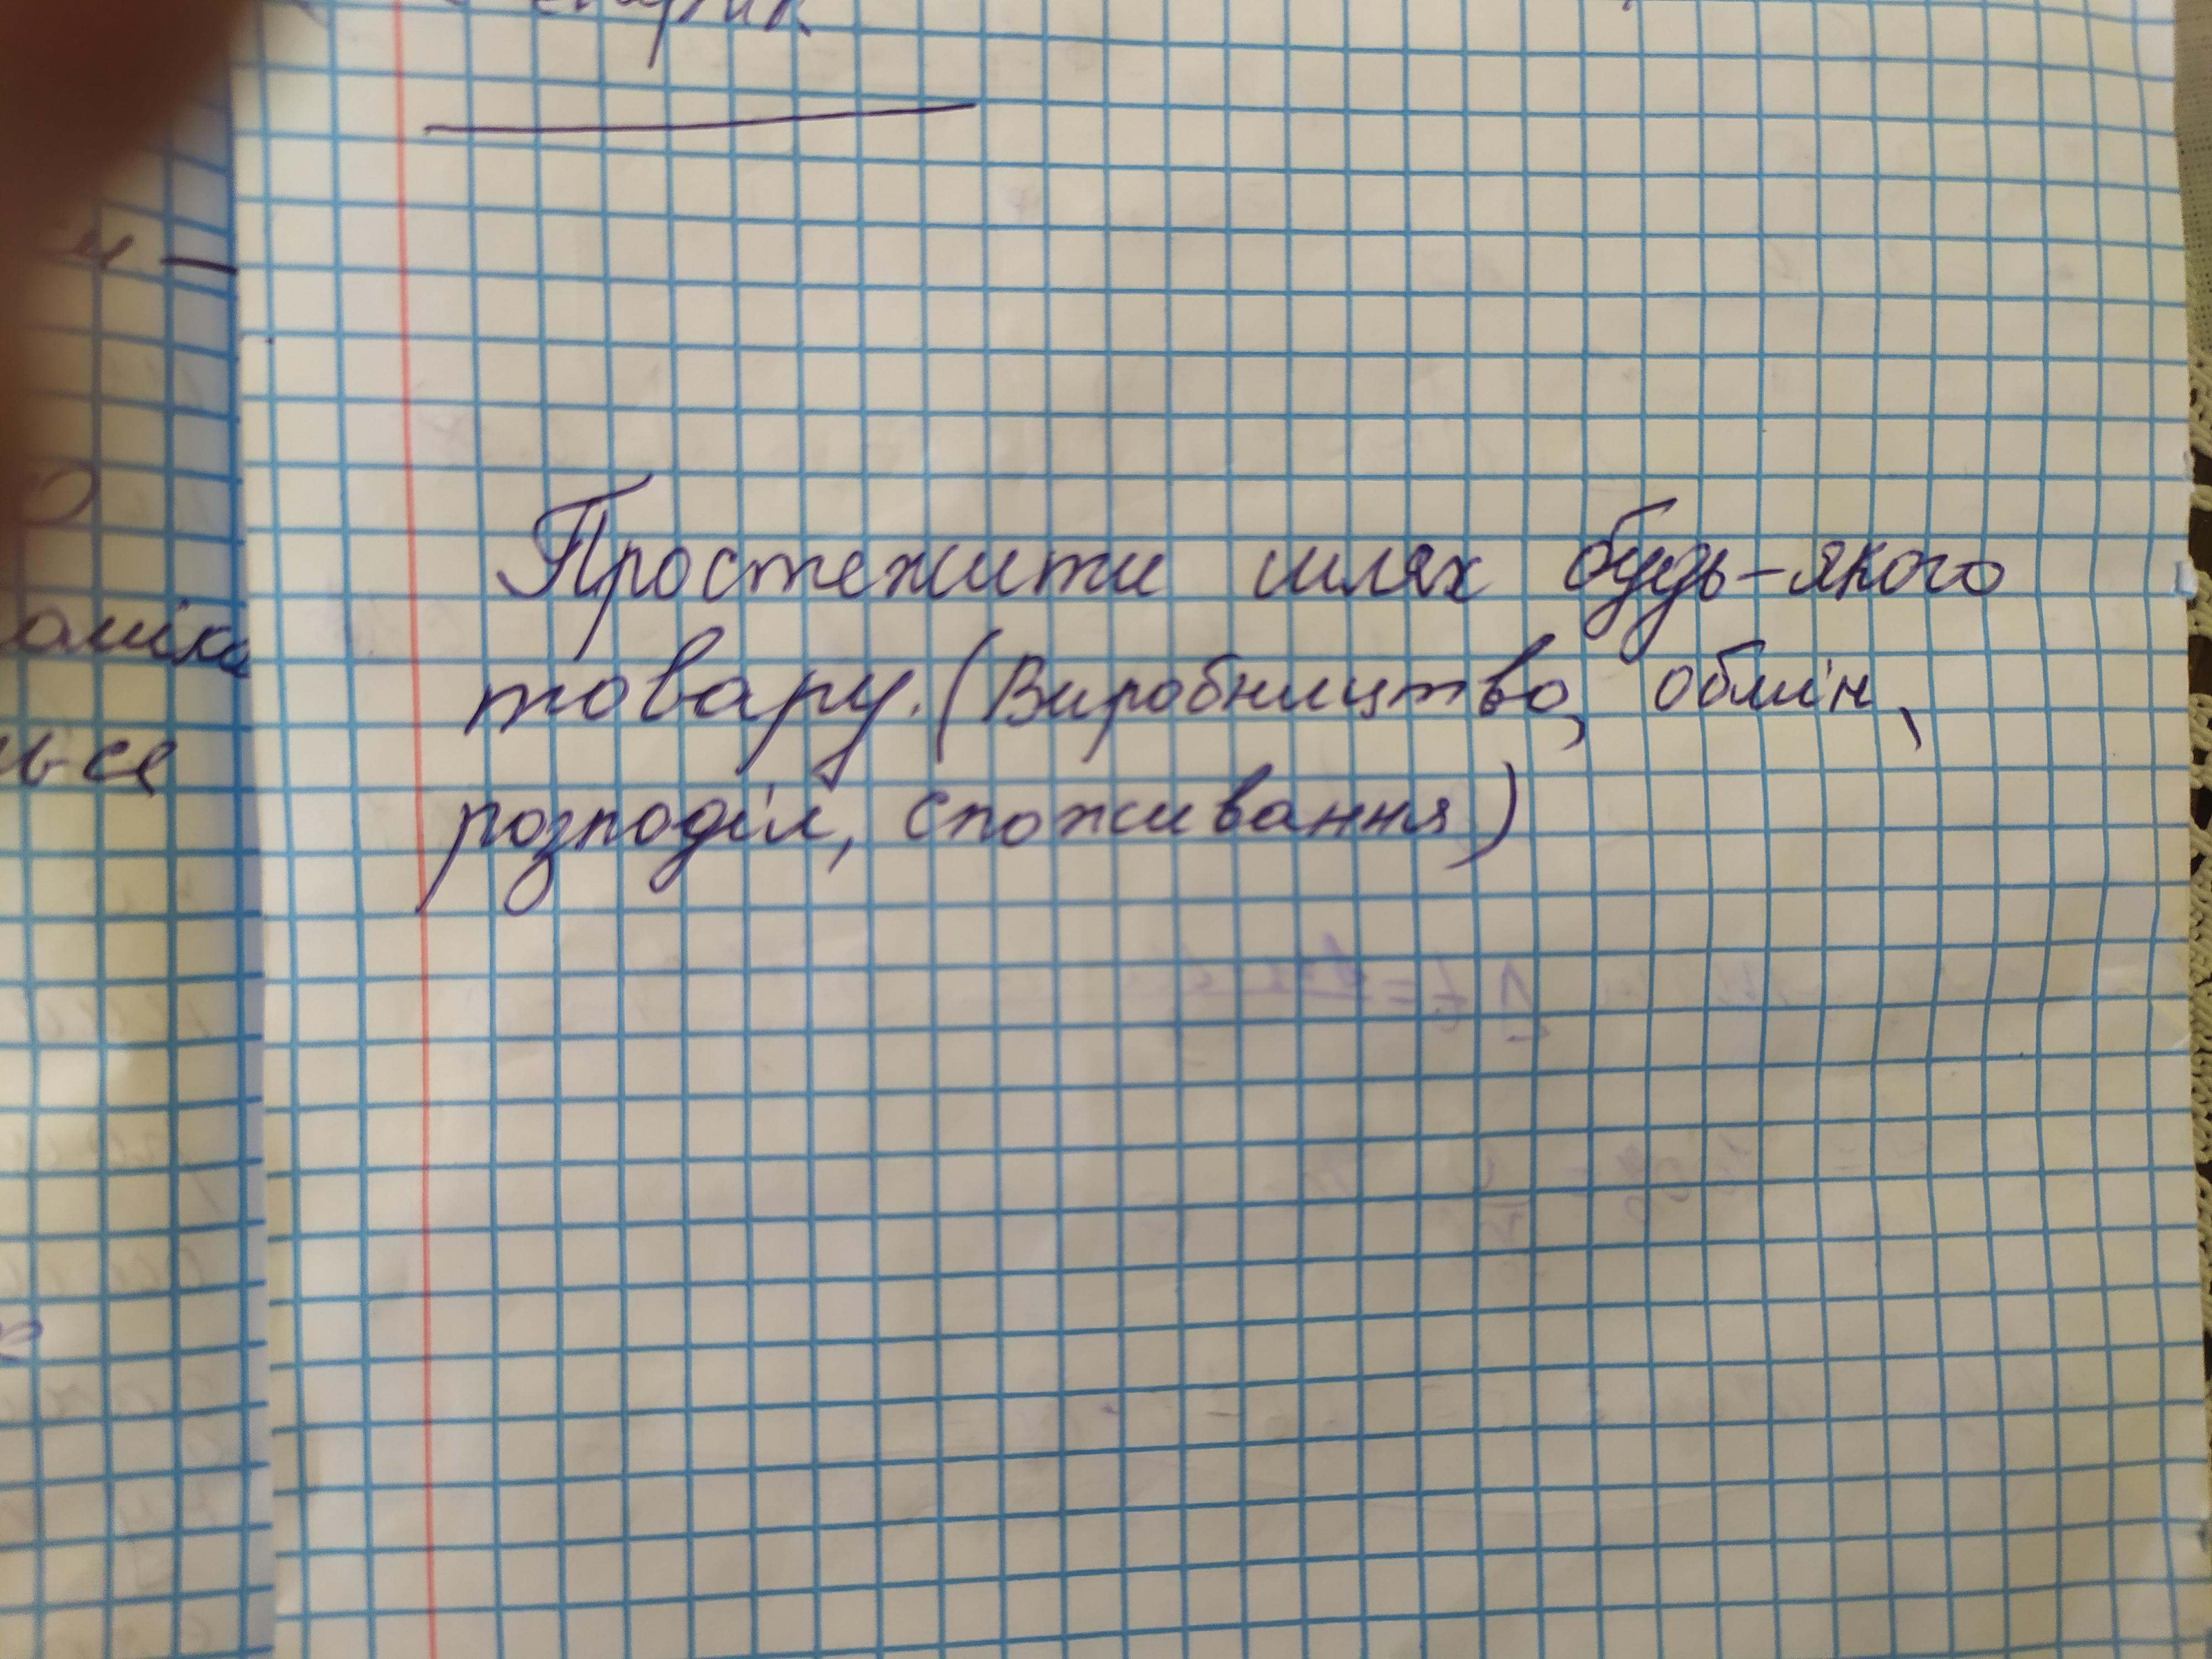 Простежити шлях будь-якого
товару. (Виробництво, обмін,
розподіл, споживання)